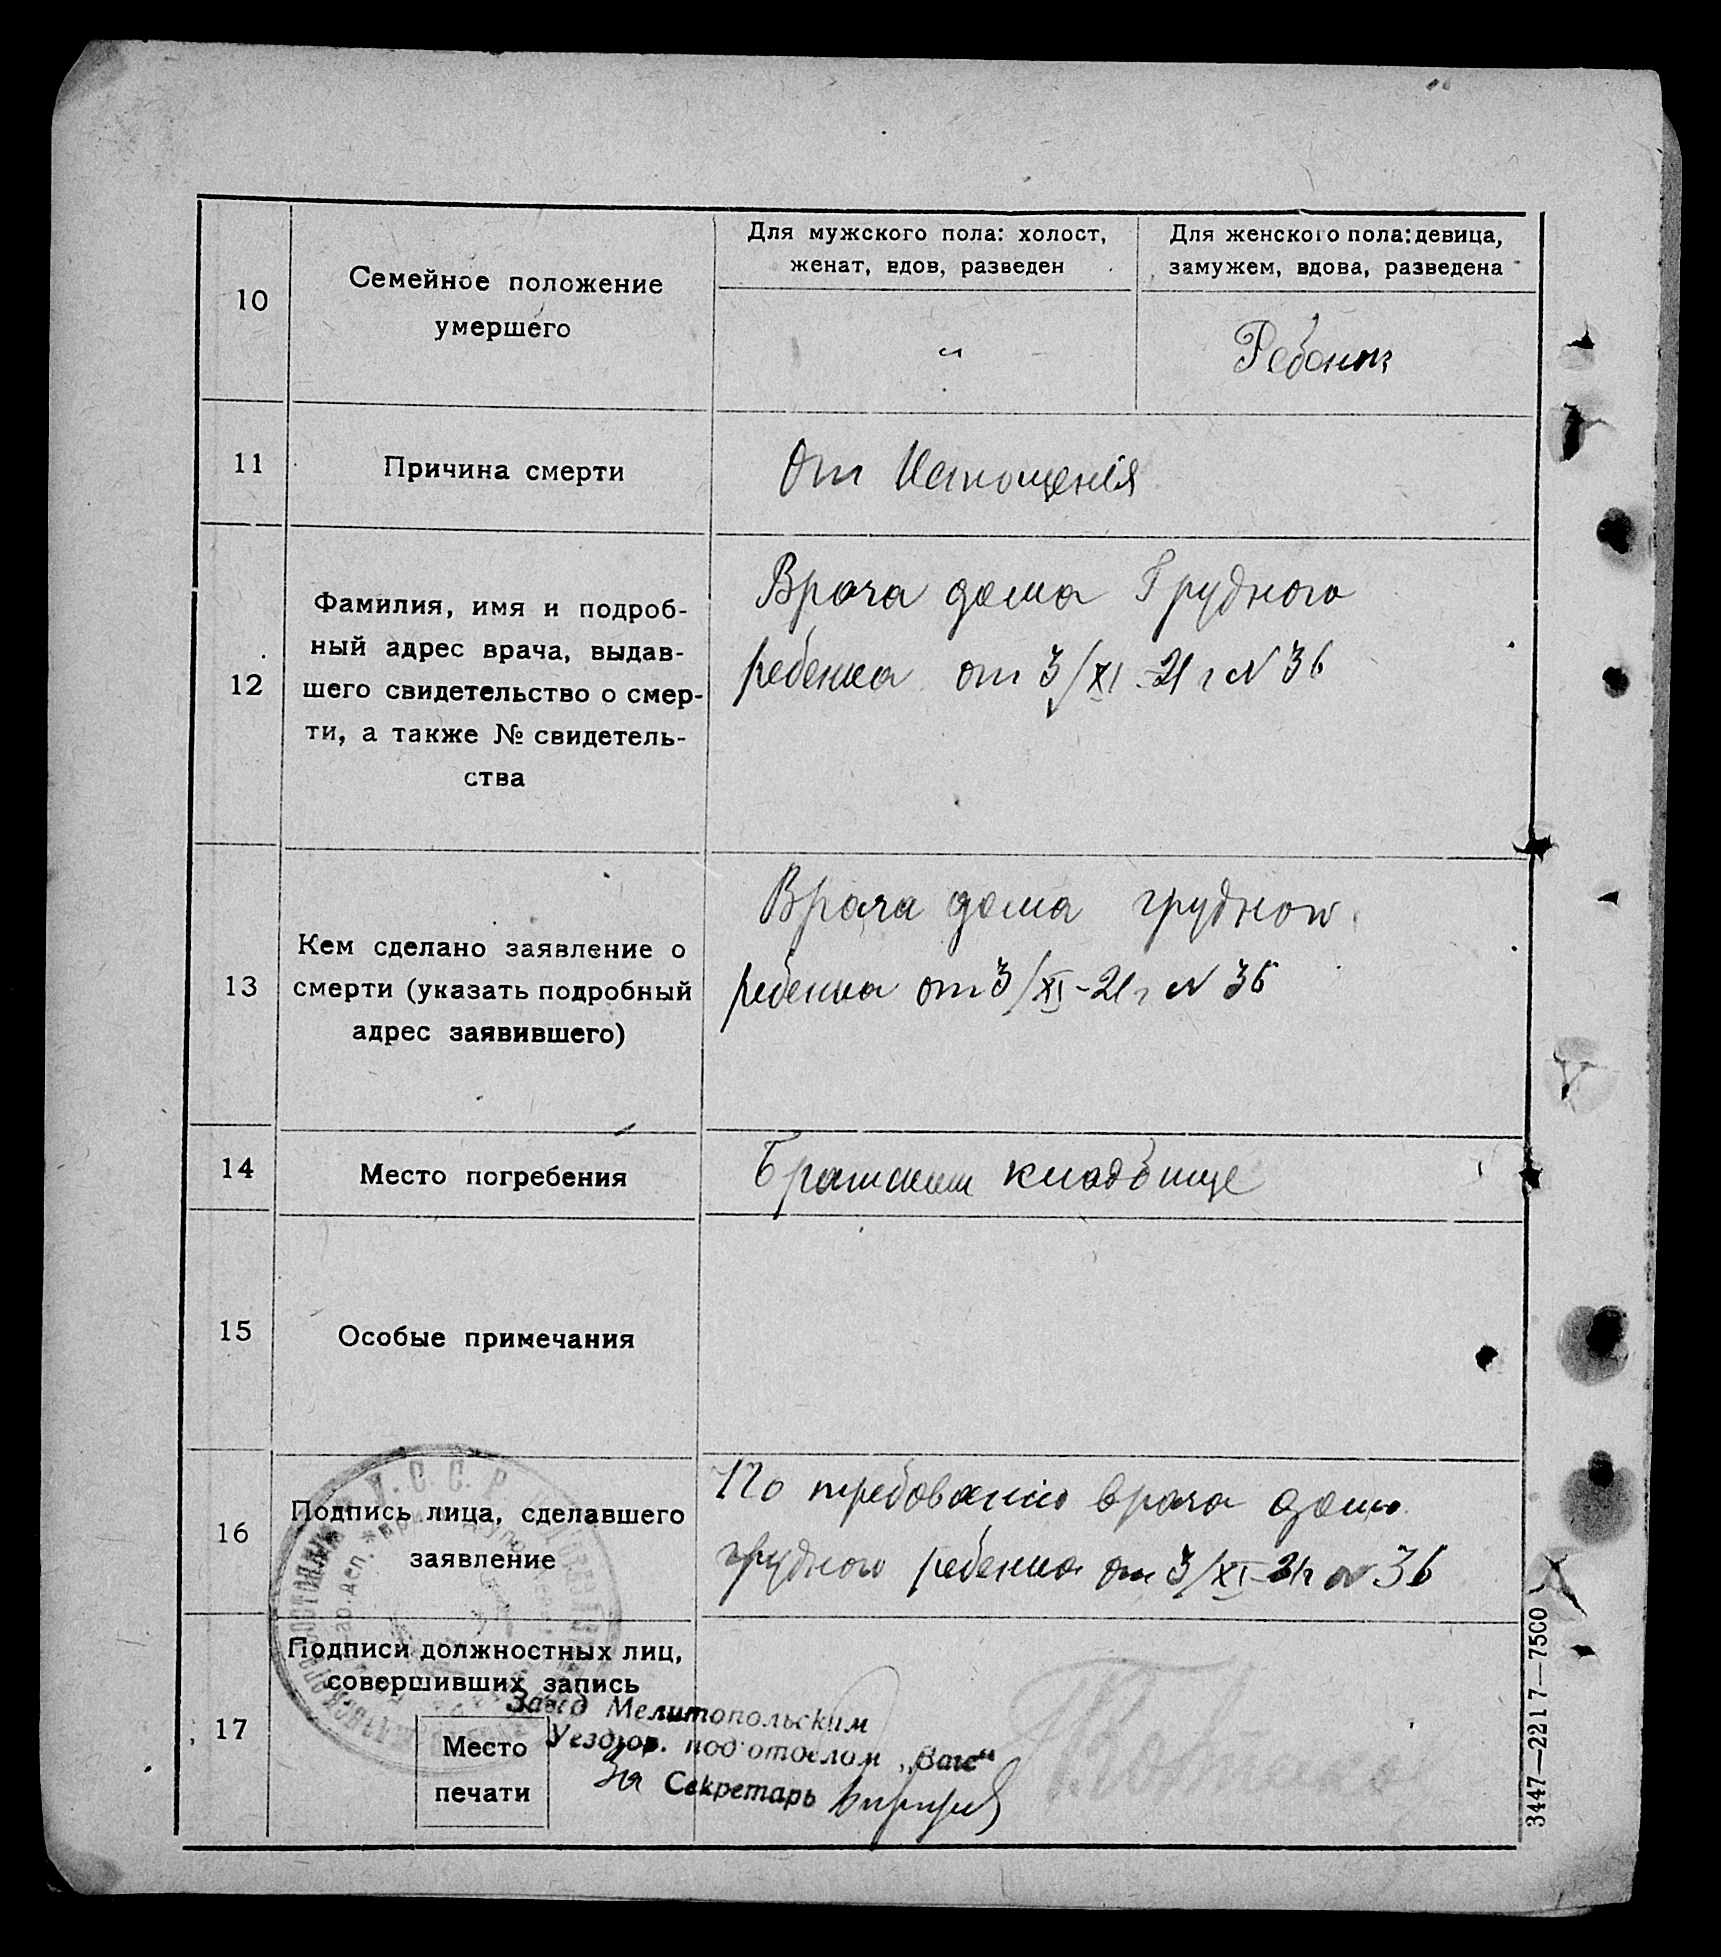 10
Семейное положение
умершего
Для мужского пола: холост,
женат, вдов, разведен
Для женского пола: девица,
замужем, вдова, разведена
"
Ребенок
11
Причина смерти
От Истощенія
12
Фамилия, имя и подроб-
ный адрес врача, выдав-
шего свидетельство о смер-
ти, а также № свидетель-
ства
Врача дома Грудного
ребенка от 3/XI-21 г N 36
13
Кем сделано заявление о
смерти (указать подробный
адрес заявившего)
Врача дома грудного
ребенка от 3/XI-21 г N 36
14
Место погребения
Братским кладбище
15
Особые примечания
16
Подпись лица, сделавшего
заявление
По требованию врача дома
грудного ребенка от 3/XI-21г N 36
17
Подписи должностных лиц,
совершивших запись
Место
печати
Завед Мелитопольским
Уездгор. под'отделом „Загс"
За Секретарь
У.С.С.Р.
3447—2217—7500